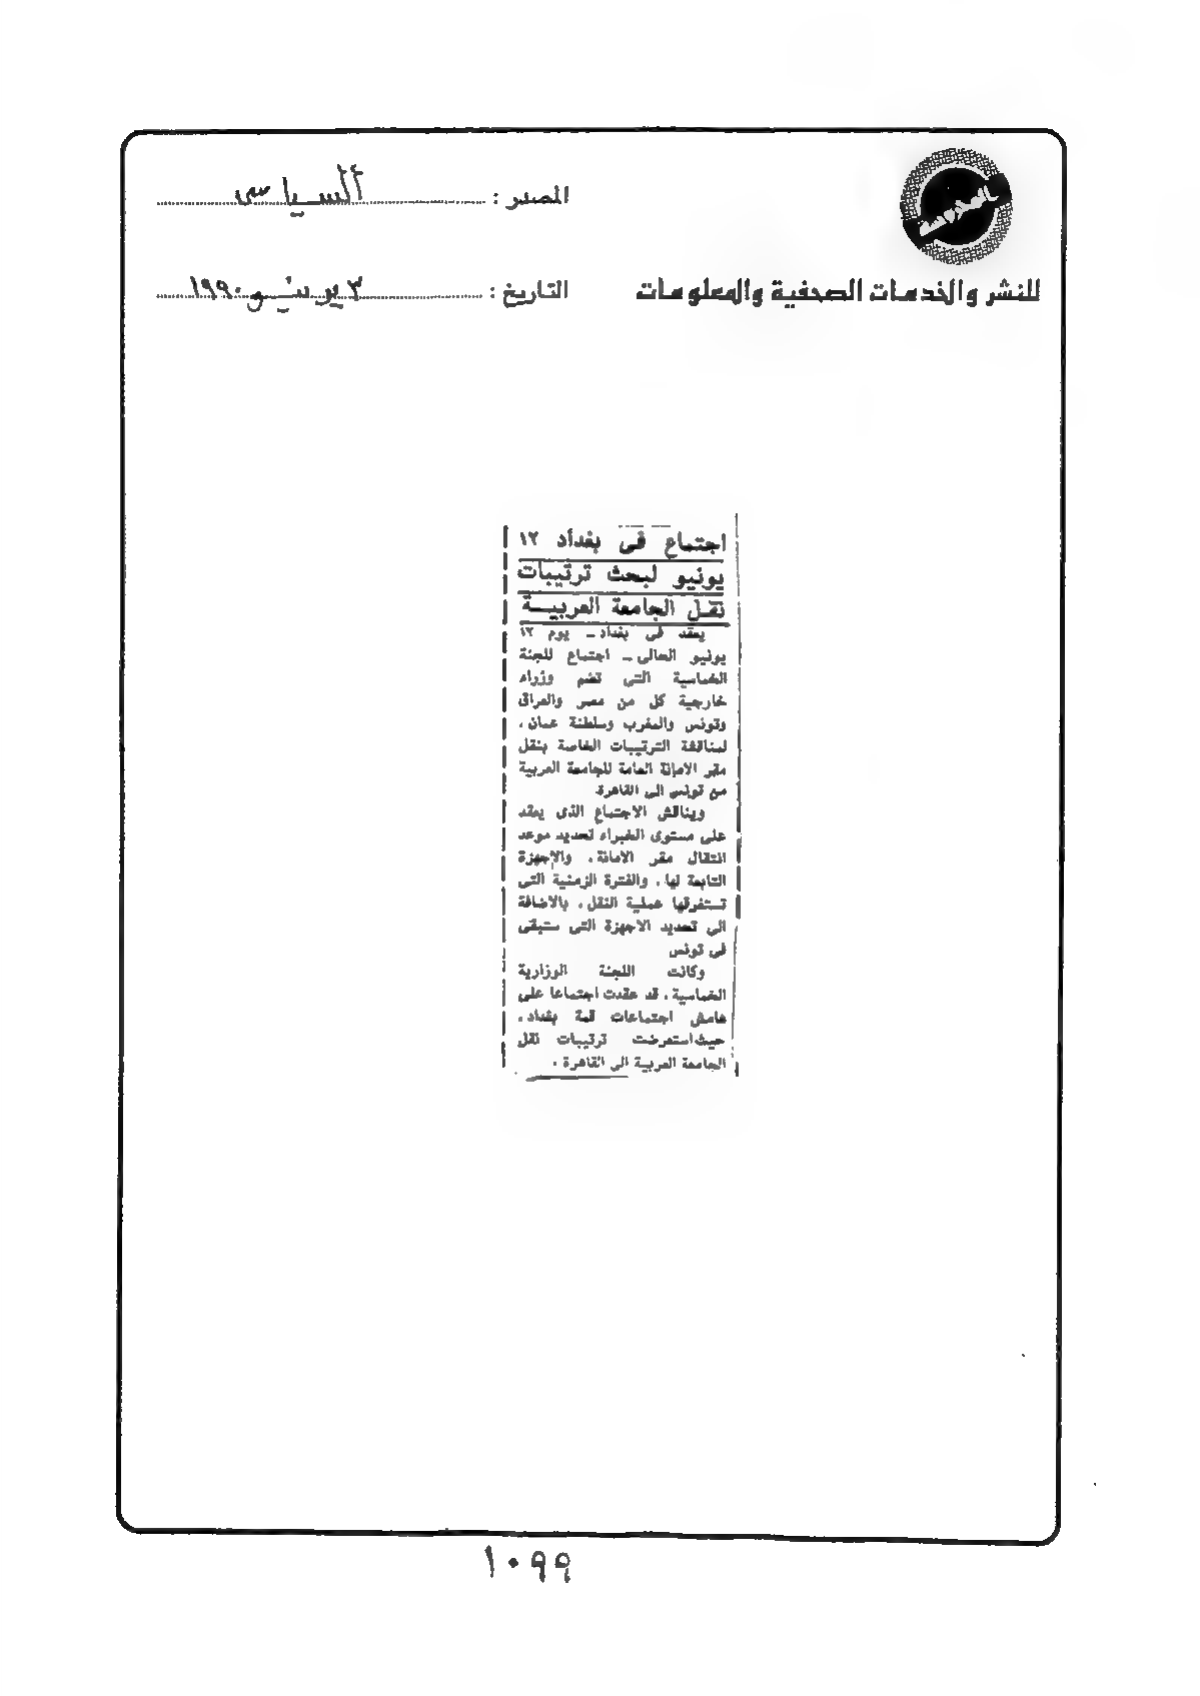 المصدر : السياسى
للنشر والخدمات الصحفية والمعلومات
التاريخ : ٣ يونيو ١٩٩٠
اجتماع فى بغداد ١٢
يونيو لبحث ترتيبات
نقل الجامعة العربية
يعقد فى بغداد ـ يوم ١٢
يونيو الحالى ـ اجتماع للجنة
الخماسية التى تضم وزراء
خارجية كل من مصر والعراق
وتونس والمغرب وسلطنة عمان ،
لمناقشة الترتيبات الخاصة بنقل
مقر الامانة العامة للجامعة العربية
من تونس الى القاهرة
ويناقش الاجتماع الذى يعقد
على مستوى الخبراء تحديد موعد
انتقال مقر الامانة ، والاجهزة
التابعة لها ، والفترة الزمنية التى
تستغرقها عملية النقل ، بالاضافة
الى تحديد الاجهزة التى ستبقى
فى تونس
وكانت اللجنة الوزارية
الخماسية ، قد عقدت اجتماعا على
هامش اجتماعات قمة بغداد ،
حيث استعرضت ترتيبات نقل
الجامعة العربية الى القاهرة .
١٠٩٩